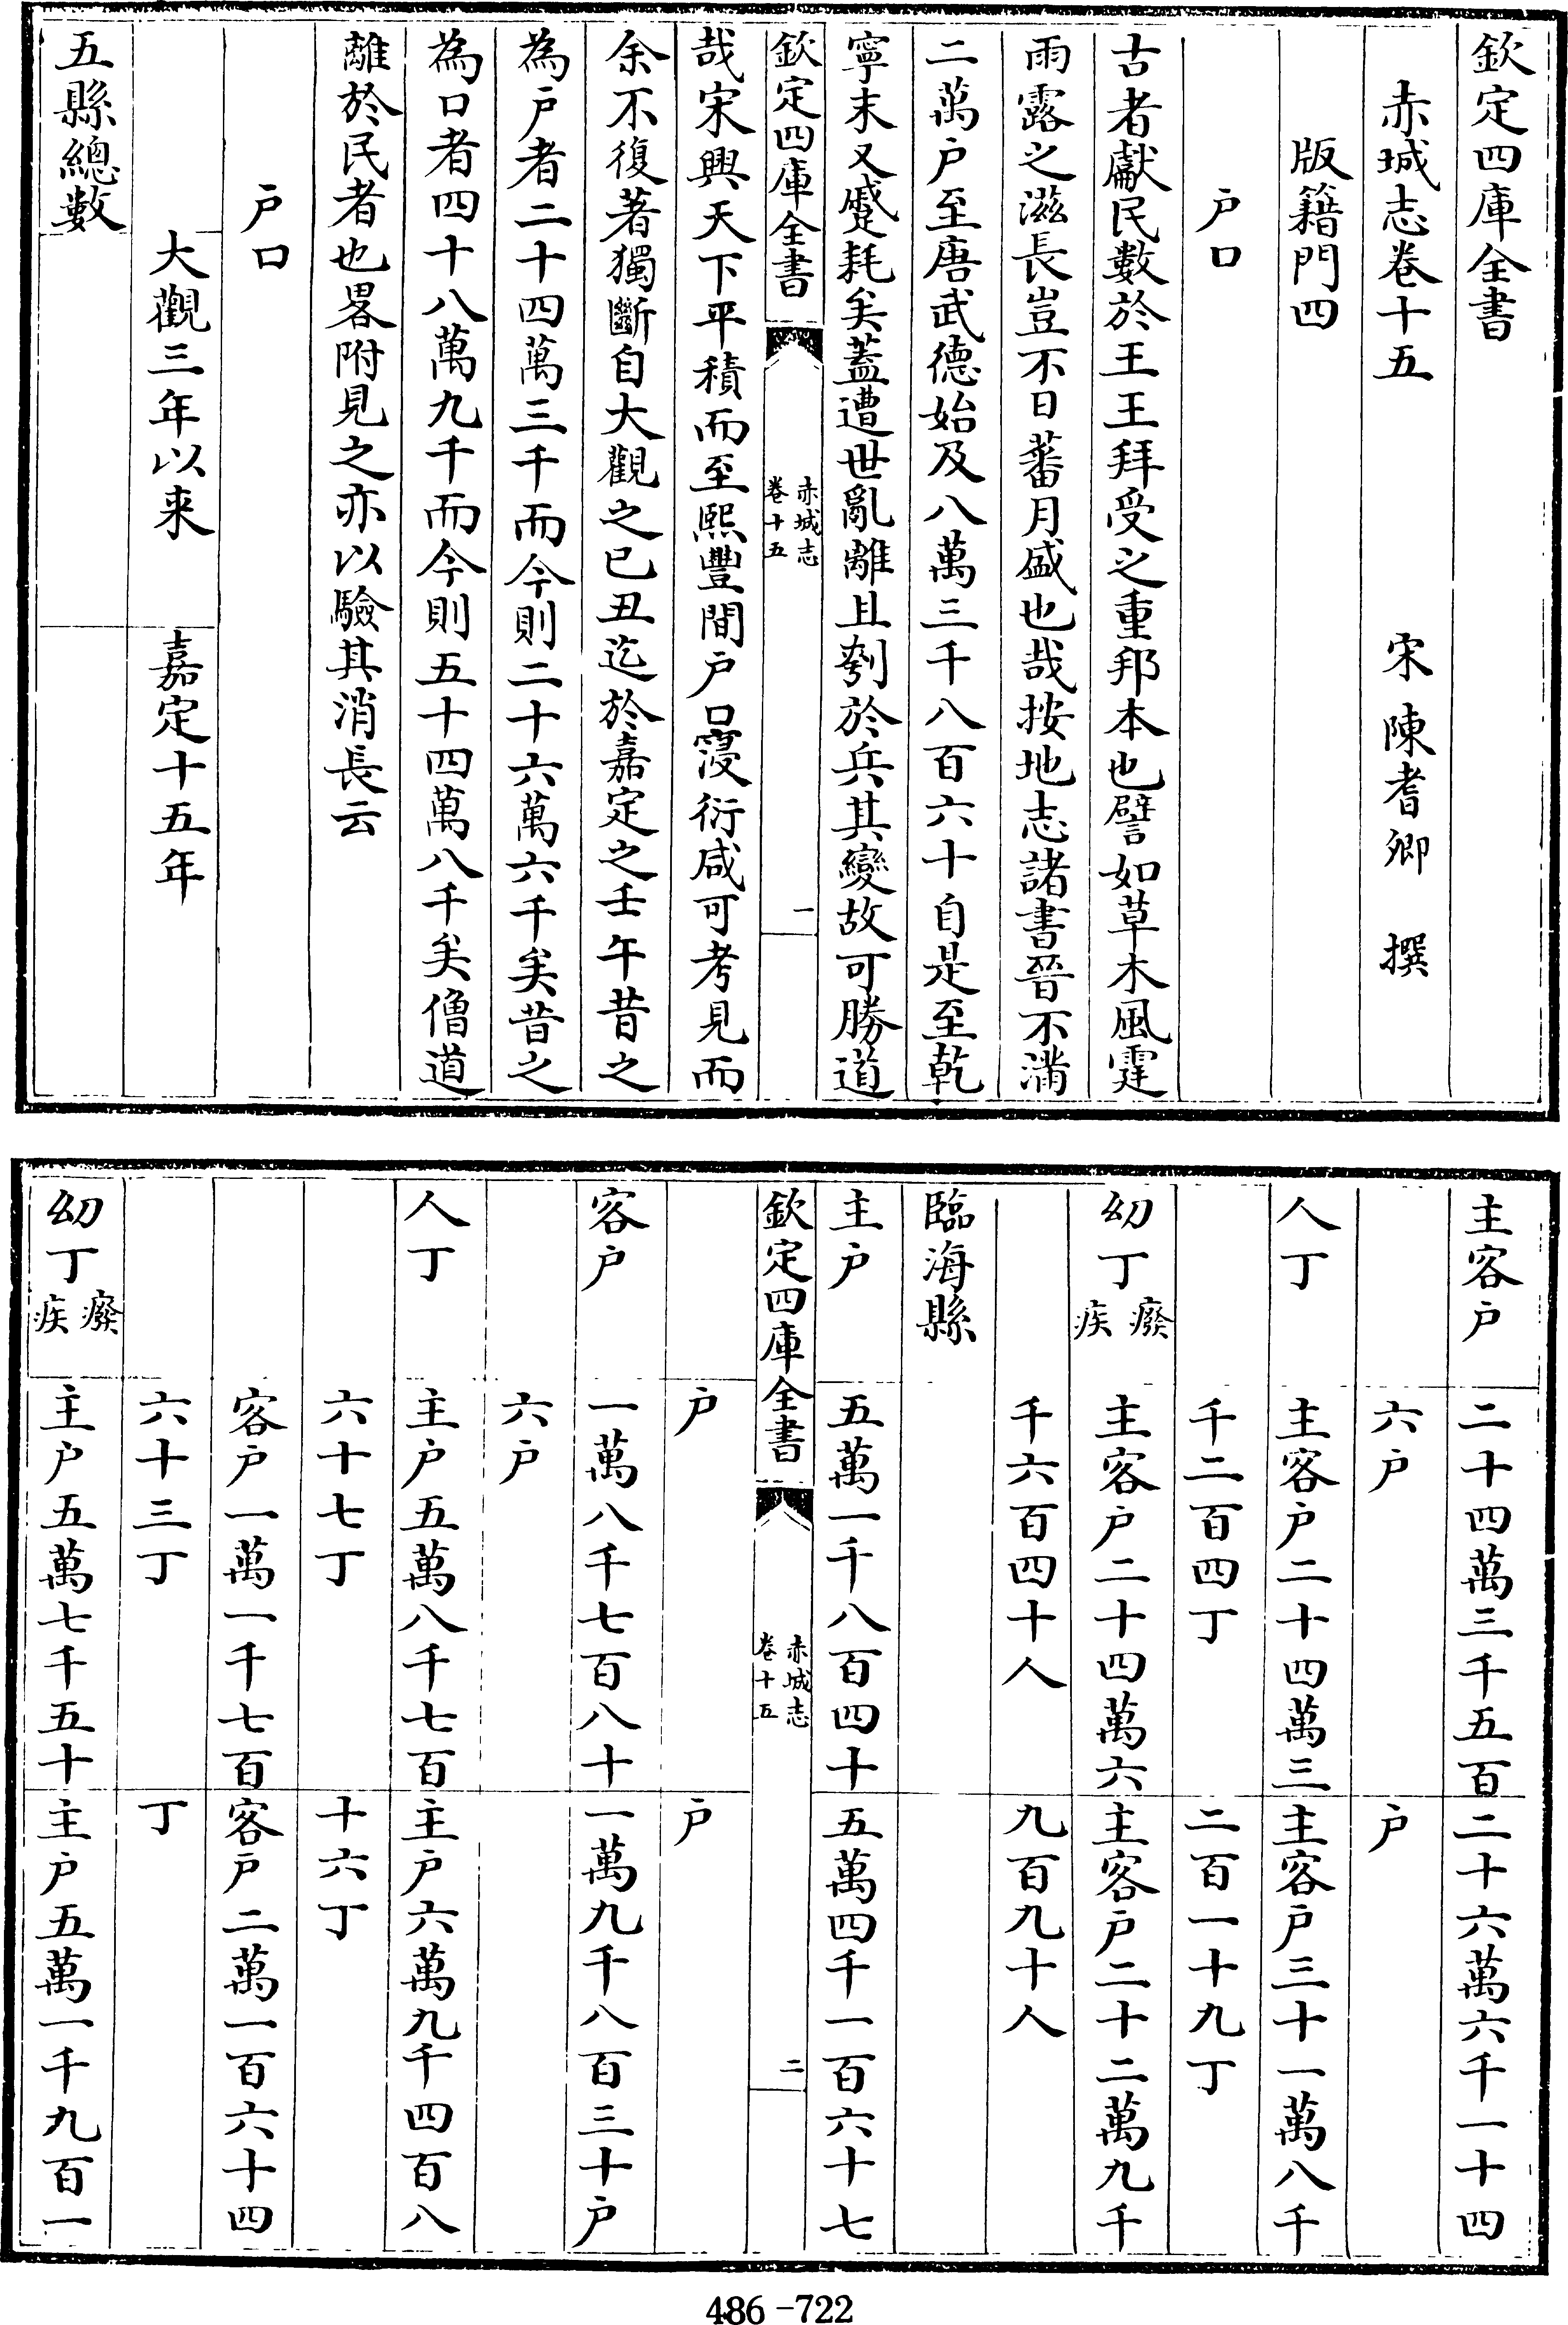 欽定四庫全書
赤城志卷十五
宋 陳耆卿 撰
版籍門四
户口
古者獻民數於王王拜受之重邦本也譬如草木風霆
雨露之滋長豈不日蕃月盛也哉按地志諸書晉不滿
二萬户至唐武德始及八萬三千八百六十自是至乾
寧末又蹙耗矣蓋遭世亂離且刳於兵其變故可勝道
欽定四庫全書
赤城志
卷十五
一
哉宋興天下平積而至熙豐間户口寖衍咸可考見而
余不復著獨斷自大觀之已丑迄於嘉定之壬午昔之
為户者二十四萬三千而今則二十六萬六千矣昔之
為口者四十八萬九千而今則五十四萬八千矣僧道
離於民者也畧附見之亦以驗其消長云
户口
大觀三年以来 嘉定十五年
五縣總數
主客户 二十四萬三千五百 二十六萬六千一十四
六户 户
人丁 主客户二十四萬三 主客户三十一萬八千
千二百四丁 二百一十九丁
幼丁廢疾 主客户二十四萬六 主客户二十二萬九千
千六百四十人 九百九十人
臨海縣
主户 五萬一千八百四十 五萬四千一百六十七
欽定四庫全書
赤城志
卷十五
二
户 户
客户 一萬八千七百八十 一萬九千八百三十户
六户
人丁 主户五萬八千七百 主户六萬九千四百八
六十七丁 十六丁
客户一萬一千七百 客户二萬一百六十四
六十三丁 丁
幼丁廢疾 主户五萬七千五十 主户五萬一千九百一
486-722